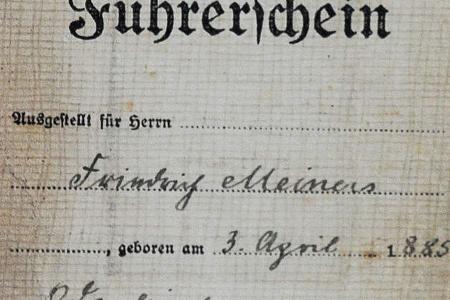 Führerschein
Ausgestellt für Herrn
Friedrich Meiners
, geboren am 3. April 1885